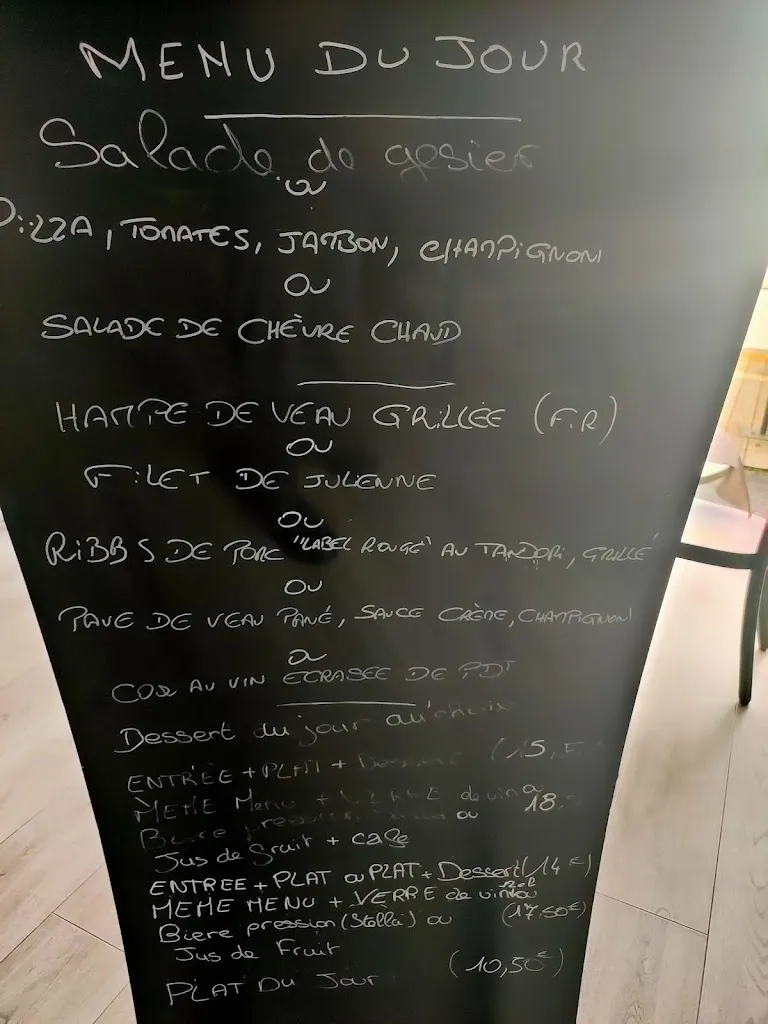 MENU DU JOUR
Salade de gesier
ou
PiZZA, TOMATES, JAMBON, CHAMPiGNON
OU
SALADE DE CHÈVRE CHAUD
HAMPE DE VEAU GRiLLÉE (F.R)
OU
FiLET DE JULIENNE
OU
RiBBS DE PORC "LABEL ROUGE" AU TANDORi, GRILLÉ
OU
PAVE DE VEAU PANÉ, SAUCE CRÈME, CHAMPiGNON
ou
COQ AU VIN ECRASEE DE PDT
Dessert du jour au choix
ENTRÉE + PLAT + Dessert (15,
MEME Menu + VERRE de vin ou 18.
Biere pression ou
Jus de fruit + cafe
ENTREE + PLAT ou PLAT + Dessert (14 €)
MEME MENU + VERRE de vin ou (17,50€)
Biere pression (Stella) ou
Jus de Fruit
PLAT DU Jour (10,50€)